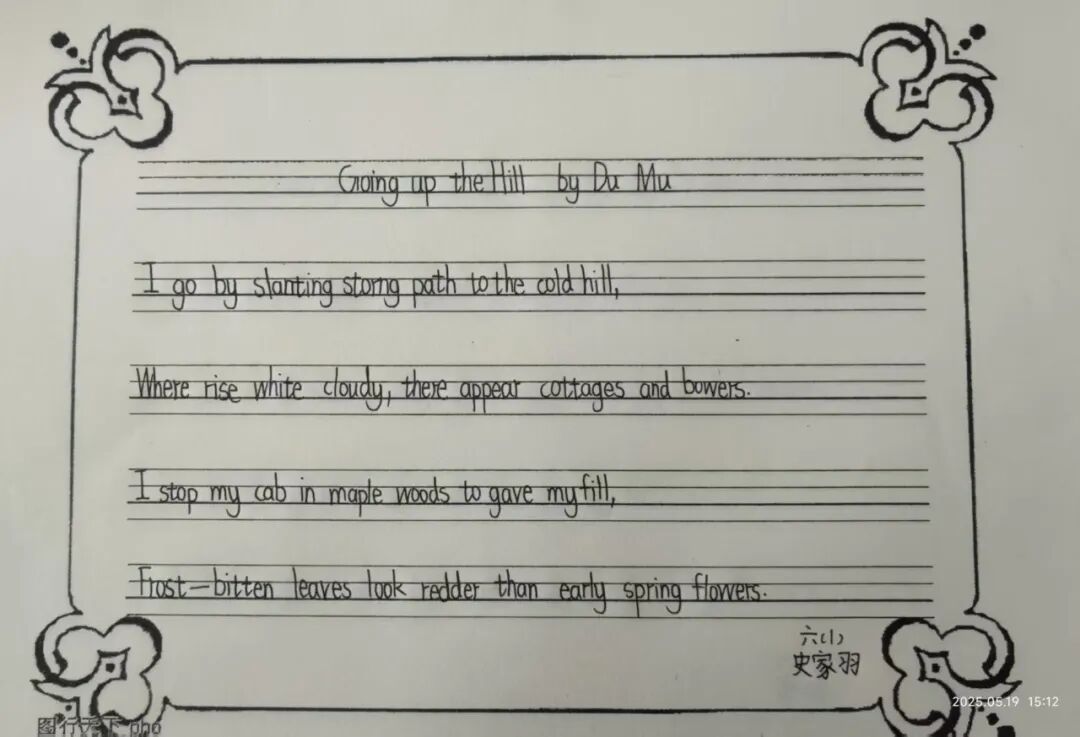 Going up the Hill by Du Mu
I go by slanting storng path to the cold hill,
Where rise white cloudy, there appear cottages and bowers.
I stop my cab in maple woods to gave my fill,
Frost-bitten leaves look redder than early spring flowers.
六(1)
史家羽
2025.05.19 15:12
图行天下 pho